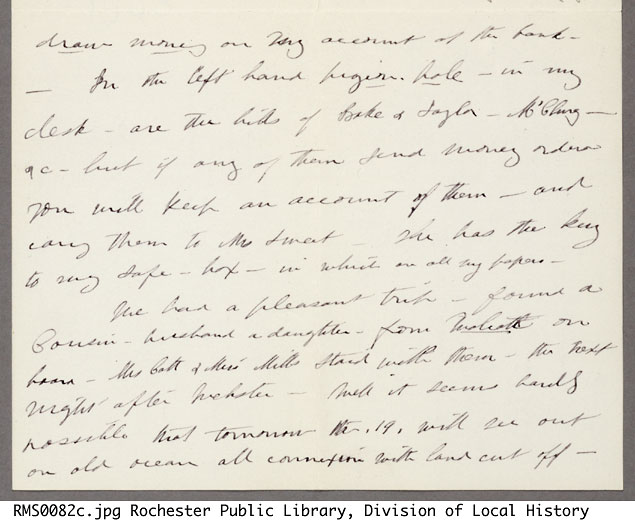 draw money on my account at the bank -
- In the left hand pigeon-hole - in my
desk - are the bills of Bake & Taylor - McClurg -
&c - but if any of them send money orders
you will keep an account of them - and
carry them to Mrs Sweet - She has the key
to my safe-box - in which are all my papers -
We had a pleasant trip - found a
Cousin - husband & daughter - from on
board - Mrs Catt & Miss Mills staid with them - the next
night after Webster - Well it seems hardly
possible that tomorrow 19, will see out
on old ocean all connexion with land cut off -
RMS0082c.jpg Rochester Public Library, Division of Local History